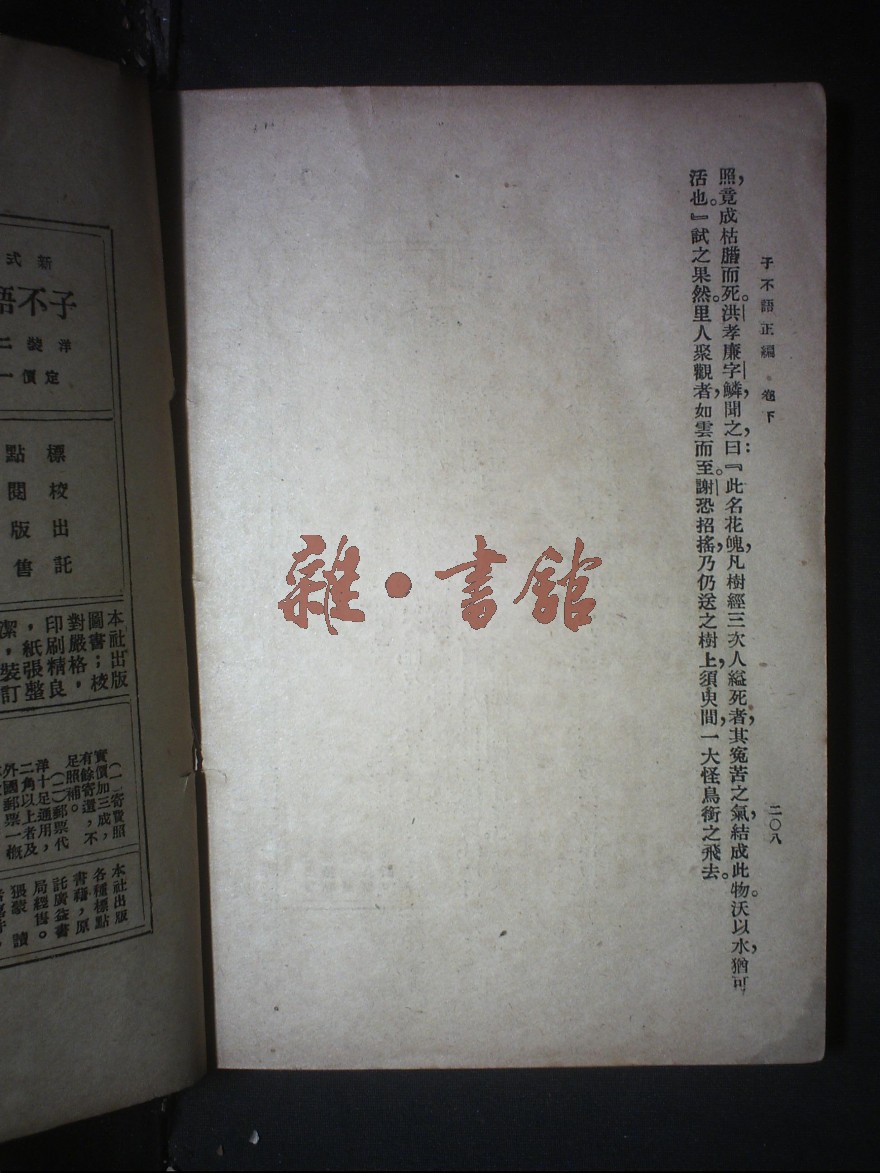 子不語正編 卷下
二〇八
照，竟成枯腊而死。洪孝廉字鱗，聞之，曰：『此名花魄，凡樹經三次人縊死者，其寃苦之氣，結成此物。沃以水，猶可
活也。』試之果然。里人聚觀者，如雲而至。謝恐招搖，乃仍送之樹上，須臾間，一大怪鳥銜之飛去。
雜·書館
新式
子不語
洋裝二
定價一
標點
校閱
出版
託售
本社出版
圖書；校
對嚴格，
印刷精良
，紙張整
潔，裝訂
（一）寄費照
實價加三成，
有餘寄還，不
足照補。
（二）郵票代
洋十足通用，
二角以上者及
外國郵票一槪
本社出版
各種標點
書籍，原
託廣益書
局經售。
猥蒙讀